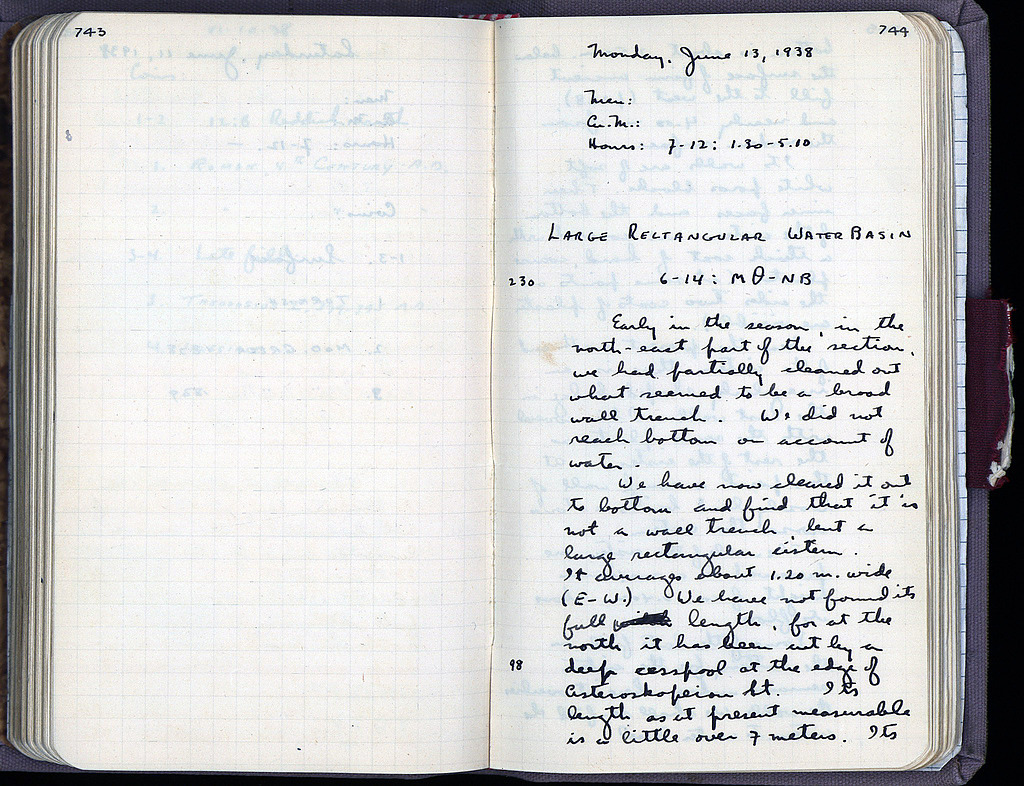 743
744
Monday, June 13, 1938
Men:
Cu. M.:
Hours: 7-12: 1.30-5.10
LARGE RECTANGULAR WATER BASIN
230 6-14: ΜΘ-ΝΒ
Early in the season, in the
north-east part of the section,
we had partially cleaned out
what seemed to be a broad
wall trench. We did not
reach bottom on account of
water.
We have now cleared it out
to bottom and find that it is
not a wall trench but a
large rectangular cistern.
It averages about 1.20 m. wide
(E-W.) We have not found its
full length, for at the
north it has been cut by a
98 deep cesspool at the edge of
Asteroskopeion St. Its
length as at present measurable
is a little over 7 meters. Its